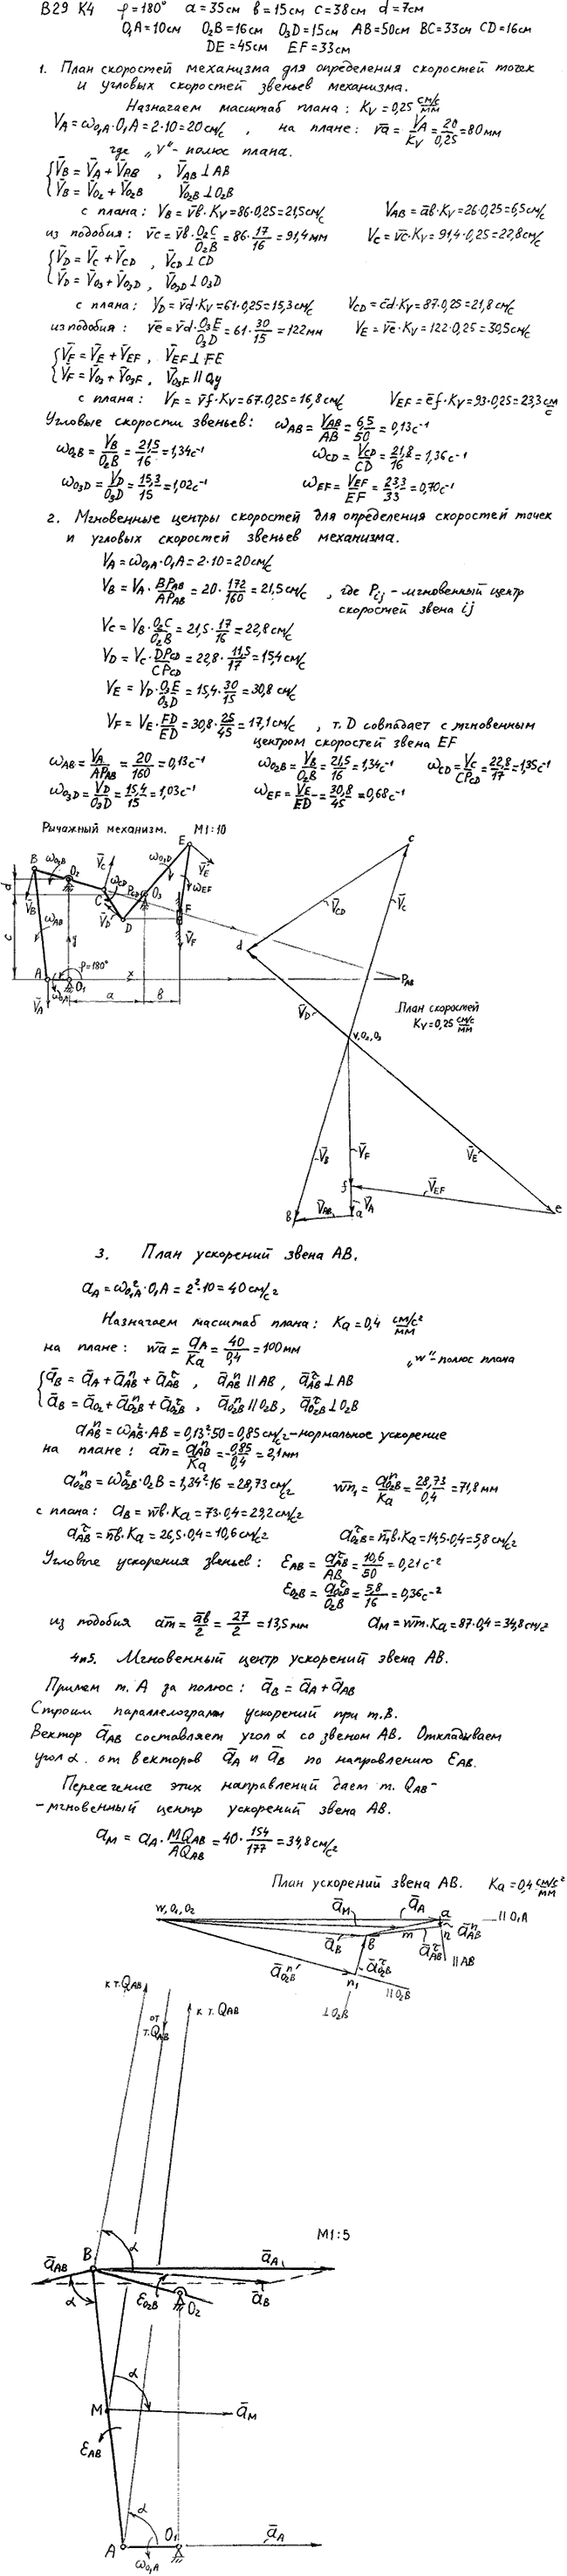 В29 К4 φ=180° a=35см b=15см c=38см d=7см
O₁A=10см O₂B=16см O₃D=15см AB=50см BC=33см CD=16см
DE=45см EF=33см
1. План скоростей механизма для определения скоростей точек
и угловых скоростей звеньев механизма.
Назначаем масштаб плана: Kv=0,25 см/с/мм
V_A=ω_O₁A·O₁A=2·10=20см/с, на плане: v̄a=V_A/Kv=20/0,25=80мм
где „V“-полюс плана.
V̄_B=V̄_A+V̄_AB, V̄_AB⊥AB
V̄_B=V̄_O₂+V̄_O₂B V̄_O₂B⊥O₂B
с плана: V_B=v̄b·Kv=86·0,25=21,5см/с V_AB=āb·Kv=26·0,25=6,5см/с
из подобия: v̄c=v̄b·O₂C/O₂B=86·17/16=91,4мм V_C=v̄c·Kv=91,4·0,25=22,8см/с
V̄_D=V̄_C+V̄_CD, V̄_CD⊥CD
V̄_D=V̄_O₃+V̄_O₃D, V̄_O₃D⊥O₃D
с плана: V_D=v̄d·Kv=61·0,25=15,3см/с V_CD=c̄d·Kv=87·0,25=21,8см/с
из подобия: v̄e=v̄d·O₃E/O₃D=61·30/15=122мм V_E=v̄e·Kv=122·0,25=30,5см/с
V̄_F=V̄_E+V̄_EF, V̄_EF⊥FE
V̄_F=V̄_O₃+V̄_O₃F, V̄_O₃F∥O₁y
с плана: V_F=v̄f·Kv=67·0,25=16,8см/с V_EF=ēf·Kv=93·0,25=23,3см/с
Угловые скорости звеньев: ω_AB=V_AB/AB=6,5/50=0,13с⁻¹
ω_O₂B=V_B/O₂B=21,5/16=1,34с⁻¹ ω_CD=V_CD/CD=21,8/16=1,36с⁻¹
ω_O₃D=V_D/O₃D=15,3/15=1,02с⁻¹ ω_EF=V_EF/EF=23,3/33=0,70с⁻¹
2. Мгновенные центры скоростей для определения скоростей точек
и угловых скоростей звеньев механизма.
V_A=ω_O₁A·O₁A=2·10=20см/с
V_B=V_A·BP_AB/AP_AB=20·172/160=21,5см/с, где P_ij-мгновенный центр
скоростей звена ij
V_C=V_B·O₂C/O₂B=21,5·17/16=22,8см/с
V_D=V_C·DP_CD/CP_CD=22,8·11,5/17=15,4см/с
V_E=V_D·O₃E/O₃D=15,4·30/15=30,8см/с
V_F=V_E·FD/ED=30,8·25/45=17,1см/с, т.D совпадает с мгновенным
центром скоростей звена EF
ω_AB=V_A/AP_AB=20/160=0,13с⁻¹ ω_O₂B=V_B/O₂B=21,5/16=1,34с⁻¹ ω_CD=V_C/CP_CD=22,8/17=1,35с⁻¹
ω_O₃D=V_D/O₃D=15,4/15=1,03с⁻¹ ω_EF=V_E/ED=30,8/45=0,68с⁻¹
Рычажный механизм. М1:10
E c
B ω_O₂B O₂ V̄_C ω_O₃D V̄_E
d ω_CD P_CD O₃ ω_EF V̄_CD V̄_C
V̄_B C F
c ω_AB V̄_D D V̄_F d
y
A φ=180° x P_AB
ω_O₁A O₁ a b
V̄_A
План скоростей
Kv=0,25 см/с/мм
V̄_D
v,O₂,O₃
V̄_B V̄_F V̄_E
f V̄_EF
b V̄_AB a V̄_A e
3. План ускорений звена АВ.
a_A=ω²_O₁A·O₁A=2²·10=40см/с²
Назначаем масштаб плана: Ka=0,4 см/с²/мм
на плане: w̄a=a_A/Ka=40/0,4=100мм „w“-полюс плана
ā_B=ā_A+āⁿ_AB+ā^τ_AB, āⁿ_AB∥AB, ā^τ_AB⊥AB
ā_B=ā_O₂+āⁿ_O₂B+ā^τ_O₂B, āⁿ_O₂B∥O₂B, ā^τ_O₂B⊥O₂B
aⁿ_AB=ω²_AB·AB=0,13²·50=0,85см/с²-нормальное ускорение
на плане: ān=aⁿ_AB/Ka=0,85/0,4=2,1мм
aⁿ_O₂B=ω²_O₂B·O₂B=1,34²·16=28,73см/с² w̄n₁=aⁿ_O₂B/Ka=28,73/0,4=71,8мм
с плана: a_B=w̄b·Ka=73·0,4=29,2см/с²
a^τ_AB=n̄b·Ka=26,5·0,4=10,6см/с² a^τ_O₂B=n̄₁b·Ka=14,5·0,4=5,8см/с²
Угловые ускорения звеньев: ε_AB=a^τ_AB/AB=10,6/50=0,21с⁻²
ε_O₂B=a^τ_O₂B/O₂B=5,8/16=0,36с⁻²
из подобия ām=āb/2=27/2=13,5мм a_M=w̄m·Ka=87·0,4=34,8см/с²
4и5. Мгновенный центр ускорений звена АВ.
Примем т.А за полюс: ā_B=ā_A+ā_AB
Строим параллелограмм ускорений при т.В.
Вектор ā_AB составляет угол α со звеном АВ. Откладываем
угол α от векторов ā_A и ā_B по направлению ε_AB.
Пересечение этих направлений дает т. Q_AB-
-мгновенный центр ускорений звена АВ.
a_M=a_A·MQ_AB/AQ_AB=40·154/177=34,8см/с²
План ускорений звена АВ. Ka=0,4 см/с²/мм
w,O₁,O₂ ā_M ā_A a ∥O₁A
ā_B b m n āⁿ_AB
ā^τ_AB ∥AB
āⁿ_O₂B n₁ ā^τ_O₂B
∥O₂B
⊥O₂B
к т.Q_AB от т.Q_AB к т.Q_AB
М1:5
ā_AB B α ā_A
α ε_O₂B O₂ ā_B
α
M ā_M
ε_AB
α
A O₁ ā_A
ω_O₁A